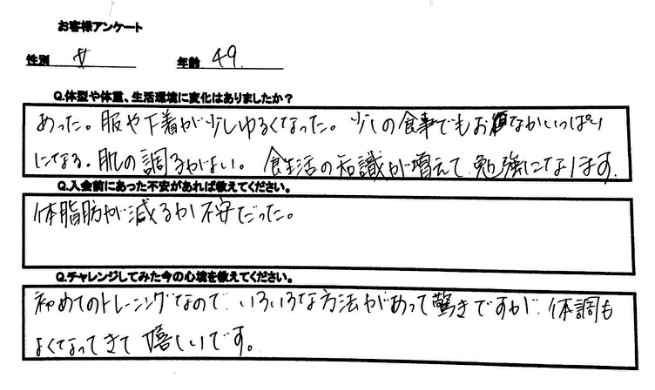 お客様アンケート
性別 女 年齢 49.
Q.体型や体重、生活環境に変化はありましたか？
あった。服や下着が少しゆるくなった。少しの食事でもおなかいっぱい
になる。肌の調子がよい。食生活の知識が増えて、勉強になります。
Q.入会前にあった不安があれば教えてください。
体脂肪が減るか不安だった。
Q.チャレンジしてみた今の心境を教えてください。
初めてのトレーニングなので、いろいろな方法があって驚きですが、体調も
よくなってきて嬉しいです。